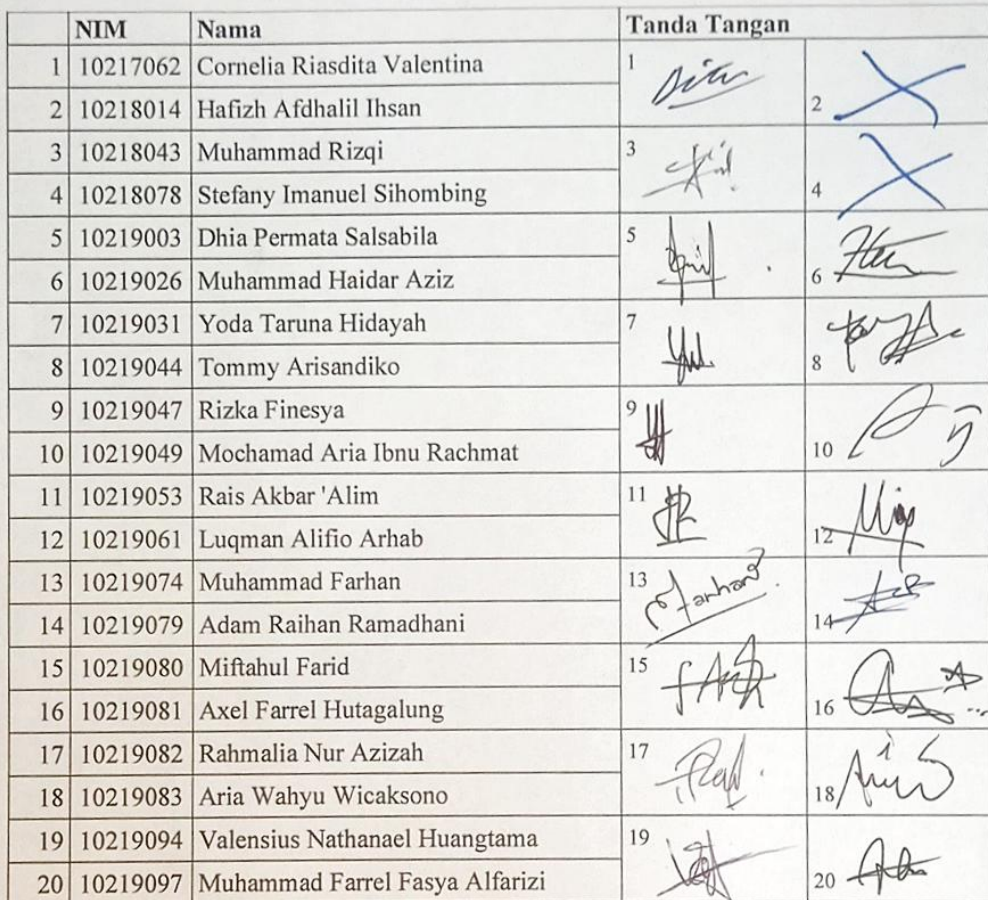 NIM Nama Tanda Tangan
1 10217062 Cornelia Riasdita Valentina 1
2 10218014 Hafizh Afdhalil Ihsan 2
3 10218043 Muhammad Rizqi 3
4 10218078 Stefany Imanuel Sihombing 4
5 10219003 Dhia Permata Salsabila 5
6 10219026 Muhammad Haidar Aziz 6
7 10219031 Yoda Taruna Hidayah 7
8 10219044 Tommy Arisandiko 8
9 10219047 Rizka Finesya 9
10 10219049 Mochamad Aria Ibnu Rachmat 10
11 10219053 Rais Akbar 'Alim 11
12 10219061 Luqman Alifio Arhab 12
13 10219074 Muhammad Farhan 13 Farhan
14 10219079 Adam Raihan Ramadhani 14
15 10219080 Miftahul Farid 15
16 10219081 Axel Farrel Hutagalung 16
17 10219082 Rahmalia Nur Azizah 17
18 10219083 Aria Wahyu Wicaksono 18
19 10219094 Valensius Nathanael Huangtama 19
20 10219097 Muhammad Farrel Fasya Alfarizi 20